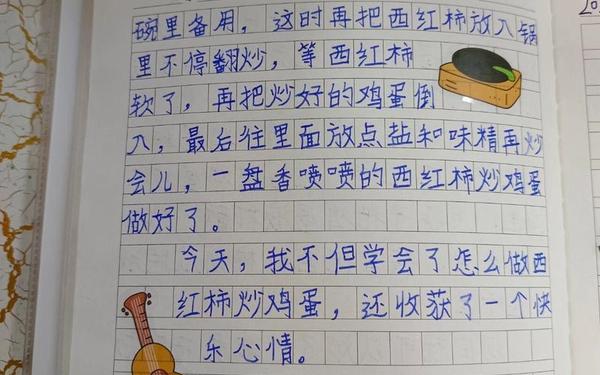 碗里备用，这时再把西红柿放入锅
里不停翻炒，等西红柿
软了，再把炒好的鸡蛋倒
入，最后往里面放点盐和味精再炒
会儿，一盘香喷喷的西红柿炒鸡蛋
做好了。
今天，我不但学会了怎么做西
红柿炒鸡蛋，还收获了一个快
乐心情。